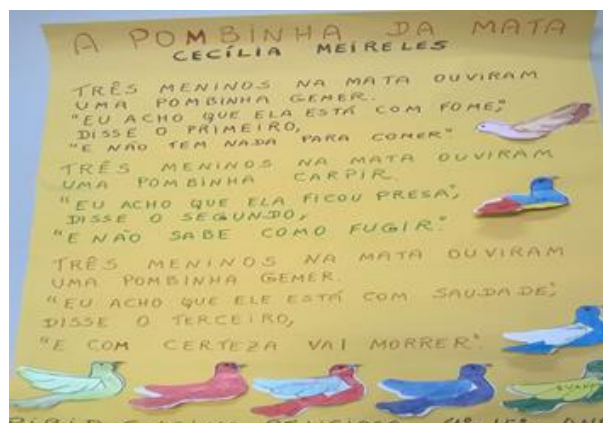 A POMBINHA DA MATA
CECÍLIA MEIRELES
TRÊS MENINOS NA MATA OUVIRAM
UMA POMBINHA GEMER.
"EU ACHO QUE ELA ESTÁ COM FOME",
DISSE O PRIMEIRO,
"E NÃO TEM NADA PARA COMER".
TRÊS MENINOS NA MATA OUVIRAM
UMA POMBINHA CARPIR.
"EU ACHO QUE ELA FICOU PRESA",
DISSE O SEGUNDO,
"E NÃO SABE COMO FUGIR".
TRÊS MENINOS NA MATA OUVIRAM
UMA POMBINHA GEMER.
"EU ACHO QUE ELE ESTÁ COM SAUDADE",
DISSE O TERCEIRO,
"E COM CERTEZA VAI MORRER".